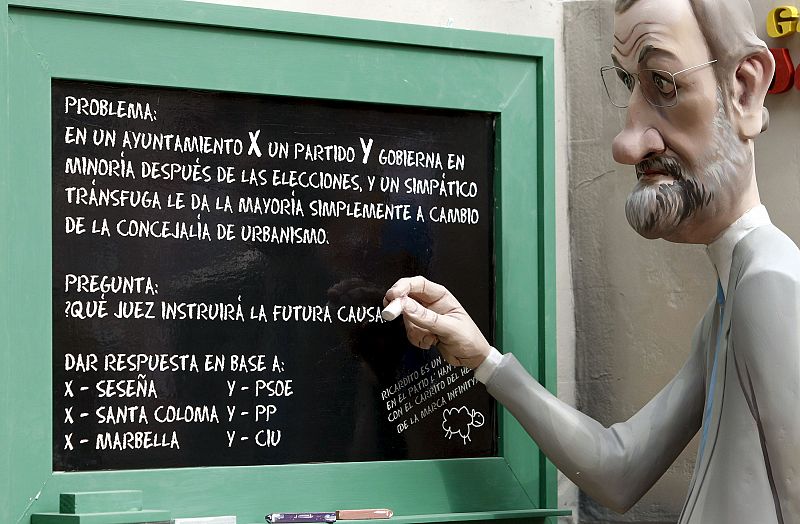 PROBLEMA:
EN UN AYUNTAMIENTO X UN PARTIDO Y GOBIERNA EN
MINORÍA DESPUÉS DE LAS ELECCIONES, Y UN SIMPÁTICO
TRÁNSFUGA LE DA LA MAYORÍA SIMPLEMENTE A CAMBIO
DE LA CONCEJALÍA DE URBANISMO.
PREGUNTA:
?QUÉ JUEZ INSTRUIRÁ LA FUTURA CAUSA
DAR RESPUESTA EN BASE A:
X - SESEÑA Y - PSOE
X - SANTA COLOMA Y - PP
X - MARBELLA Y - CIU
RICARDITO ES UN
EN EL PATIO L' HAN
CON EL CARRITO DEL HE
(DE LA MARCA INFINITY)